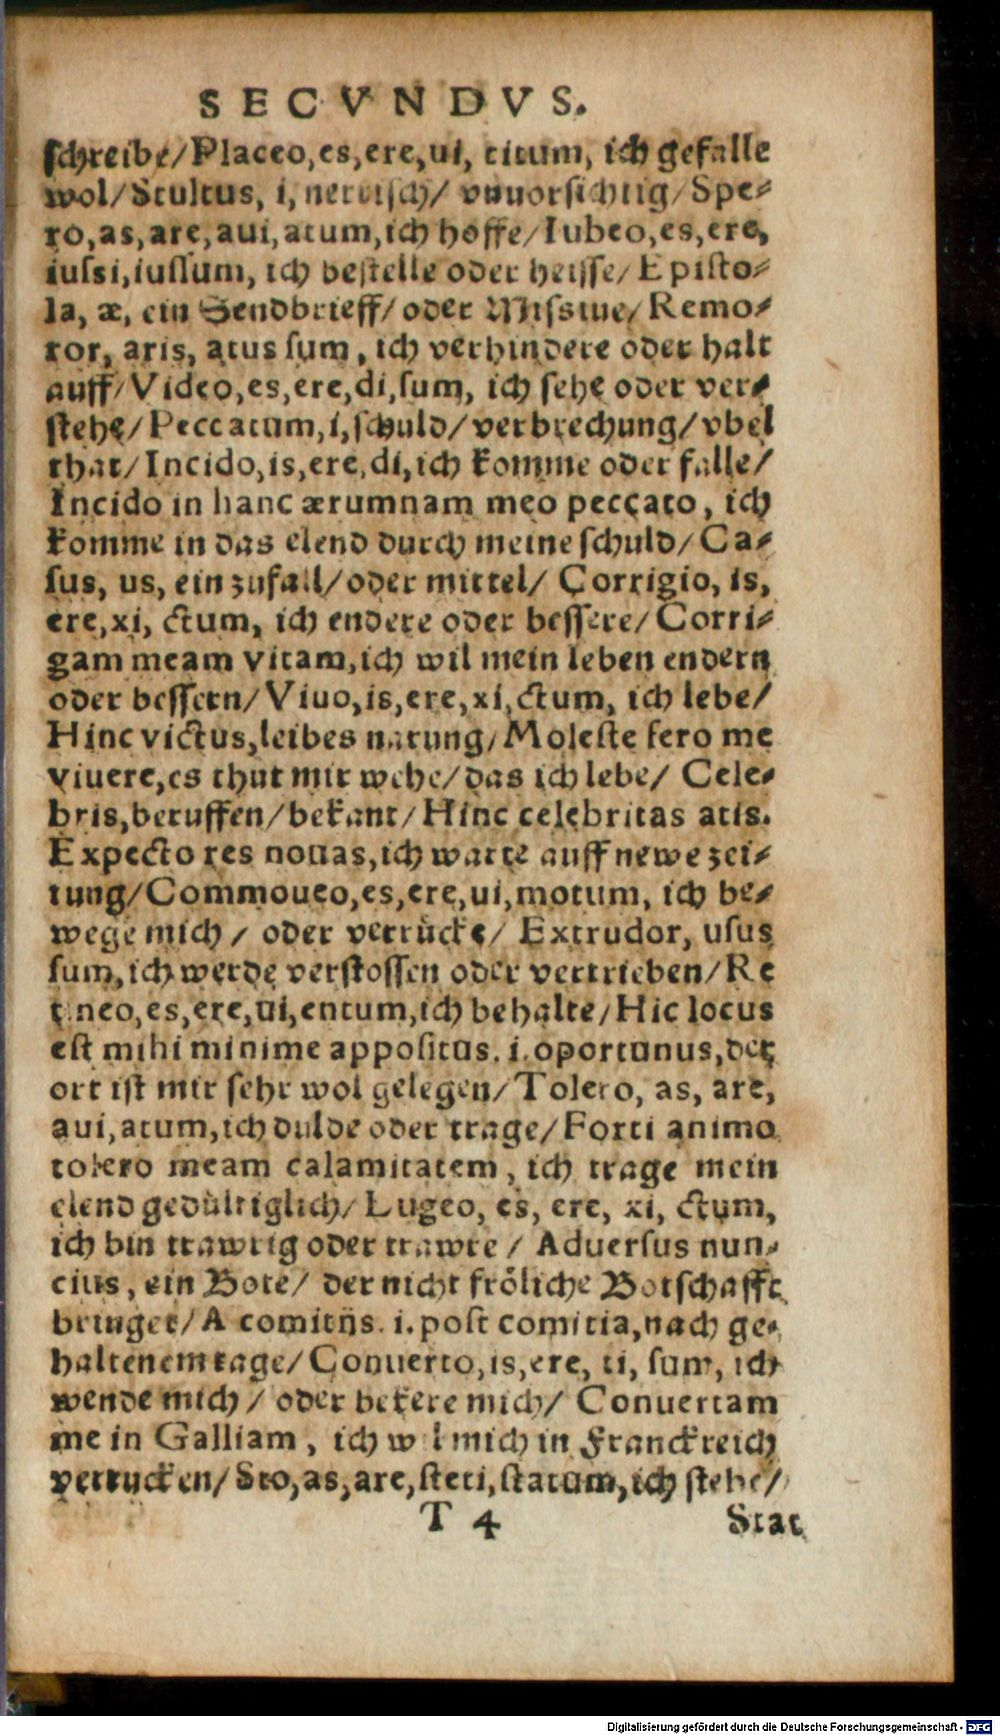 SECVNDVS.
schreibe/Placeo,es,ere,ui, citum, ich gefalle
wol/Stultus, i, nerrisch/ vnuorsichtig/Spe-
ro,as,are,aui,atum,ich hoffe/Iubeo,es,ere,
iussi,iussum, ich bestelle oder heisse/Episto-
la, æ, ein Sendbrieff/oder Missiue/Remo-
ror, aris, atus sum, ich verhindere oder halt
auff/Video,es,ere,di,sum, ich sehe oder ver-
stehe/Peccatum,i,schuld/verbrechung/vbel
that/Incido,is,ere,di,ich komme oder falle/
Incido in hanc ærumnam meo peccato, ich
komme in das elend durch meine schuld/Ca-
sus, us, ein zufall/oder mittel/ Corrigio, is,
ere,xi, ctum, ich endere oder bessere/Corri-
gam meam vitam,ich wil mein leben endern
oder bessern/Viuo,is,ere,xi,ctum, ich lebe/
Hinc victus,leibes narung/Moleste fero me
viuere,es thut mir wehe/das ich lebe/ Cele-
bris,beruffen/bekant/Hinc celebritas atis.
Expecto res nouas,ich warte auff newe zei-
tung/Commoueo,es,ere,ui,motum, ich be-
wege mich/ oder verrücke/ Extrudor, usus
sum,ich werde verstossen oder vertrieben/Re
tineo,es,ere,ui,entum,ich behalte/Hic locus
est mihi minime appositus. i.oportunus,der
ort ist mir sehr wol gelegen/Tolero, as, are,
aui,atum,ich dulde oder trage/Forti animo
tolero meam calamitatem, ich trage mein
elend gedültiglich/Lugeo, es, ere, xi, ctum,
ich bin trawrig oder trawre/ Aduersus nun-
cius, ein Bote/ der nicht fröliche Botschafft
bringet/A comitijs. i.post comitia,nach ge-
haltenem tage/Conuerto,is,ere, ti, sum, ich
wende mich/ oder bekere mich/ Conuertam
me in Galliam, ich wil mich in Franckreich
verrucken/Sto,as,are,steti,statum,ich stehe/
T 4 Stat
Digitalisierung gefördert durch die Deutsche Forschungsgemeinschaft - DFG